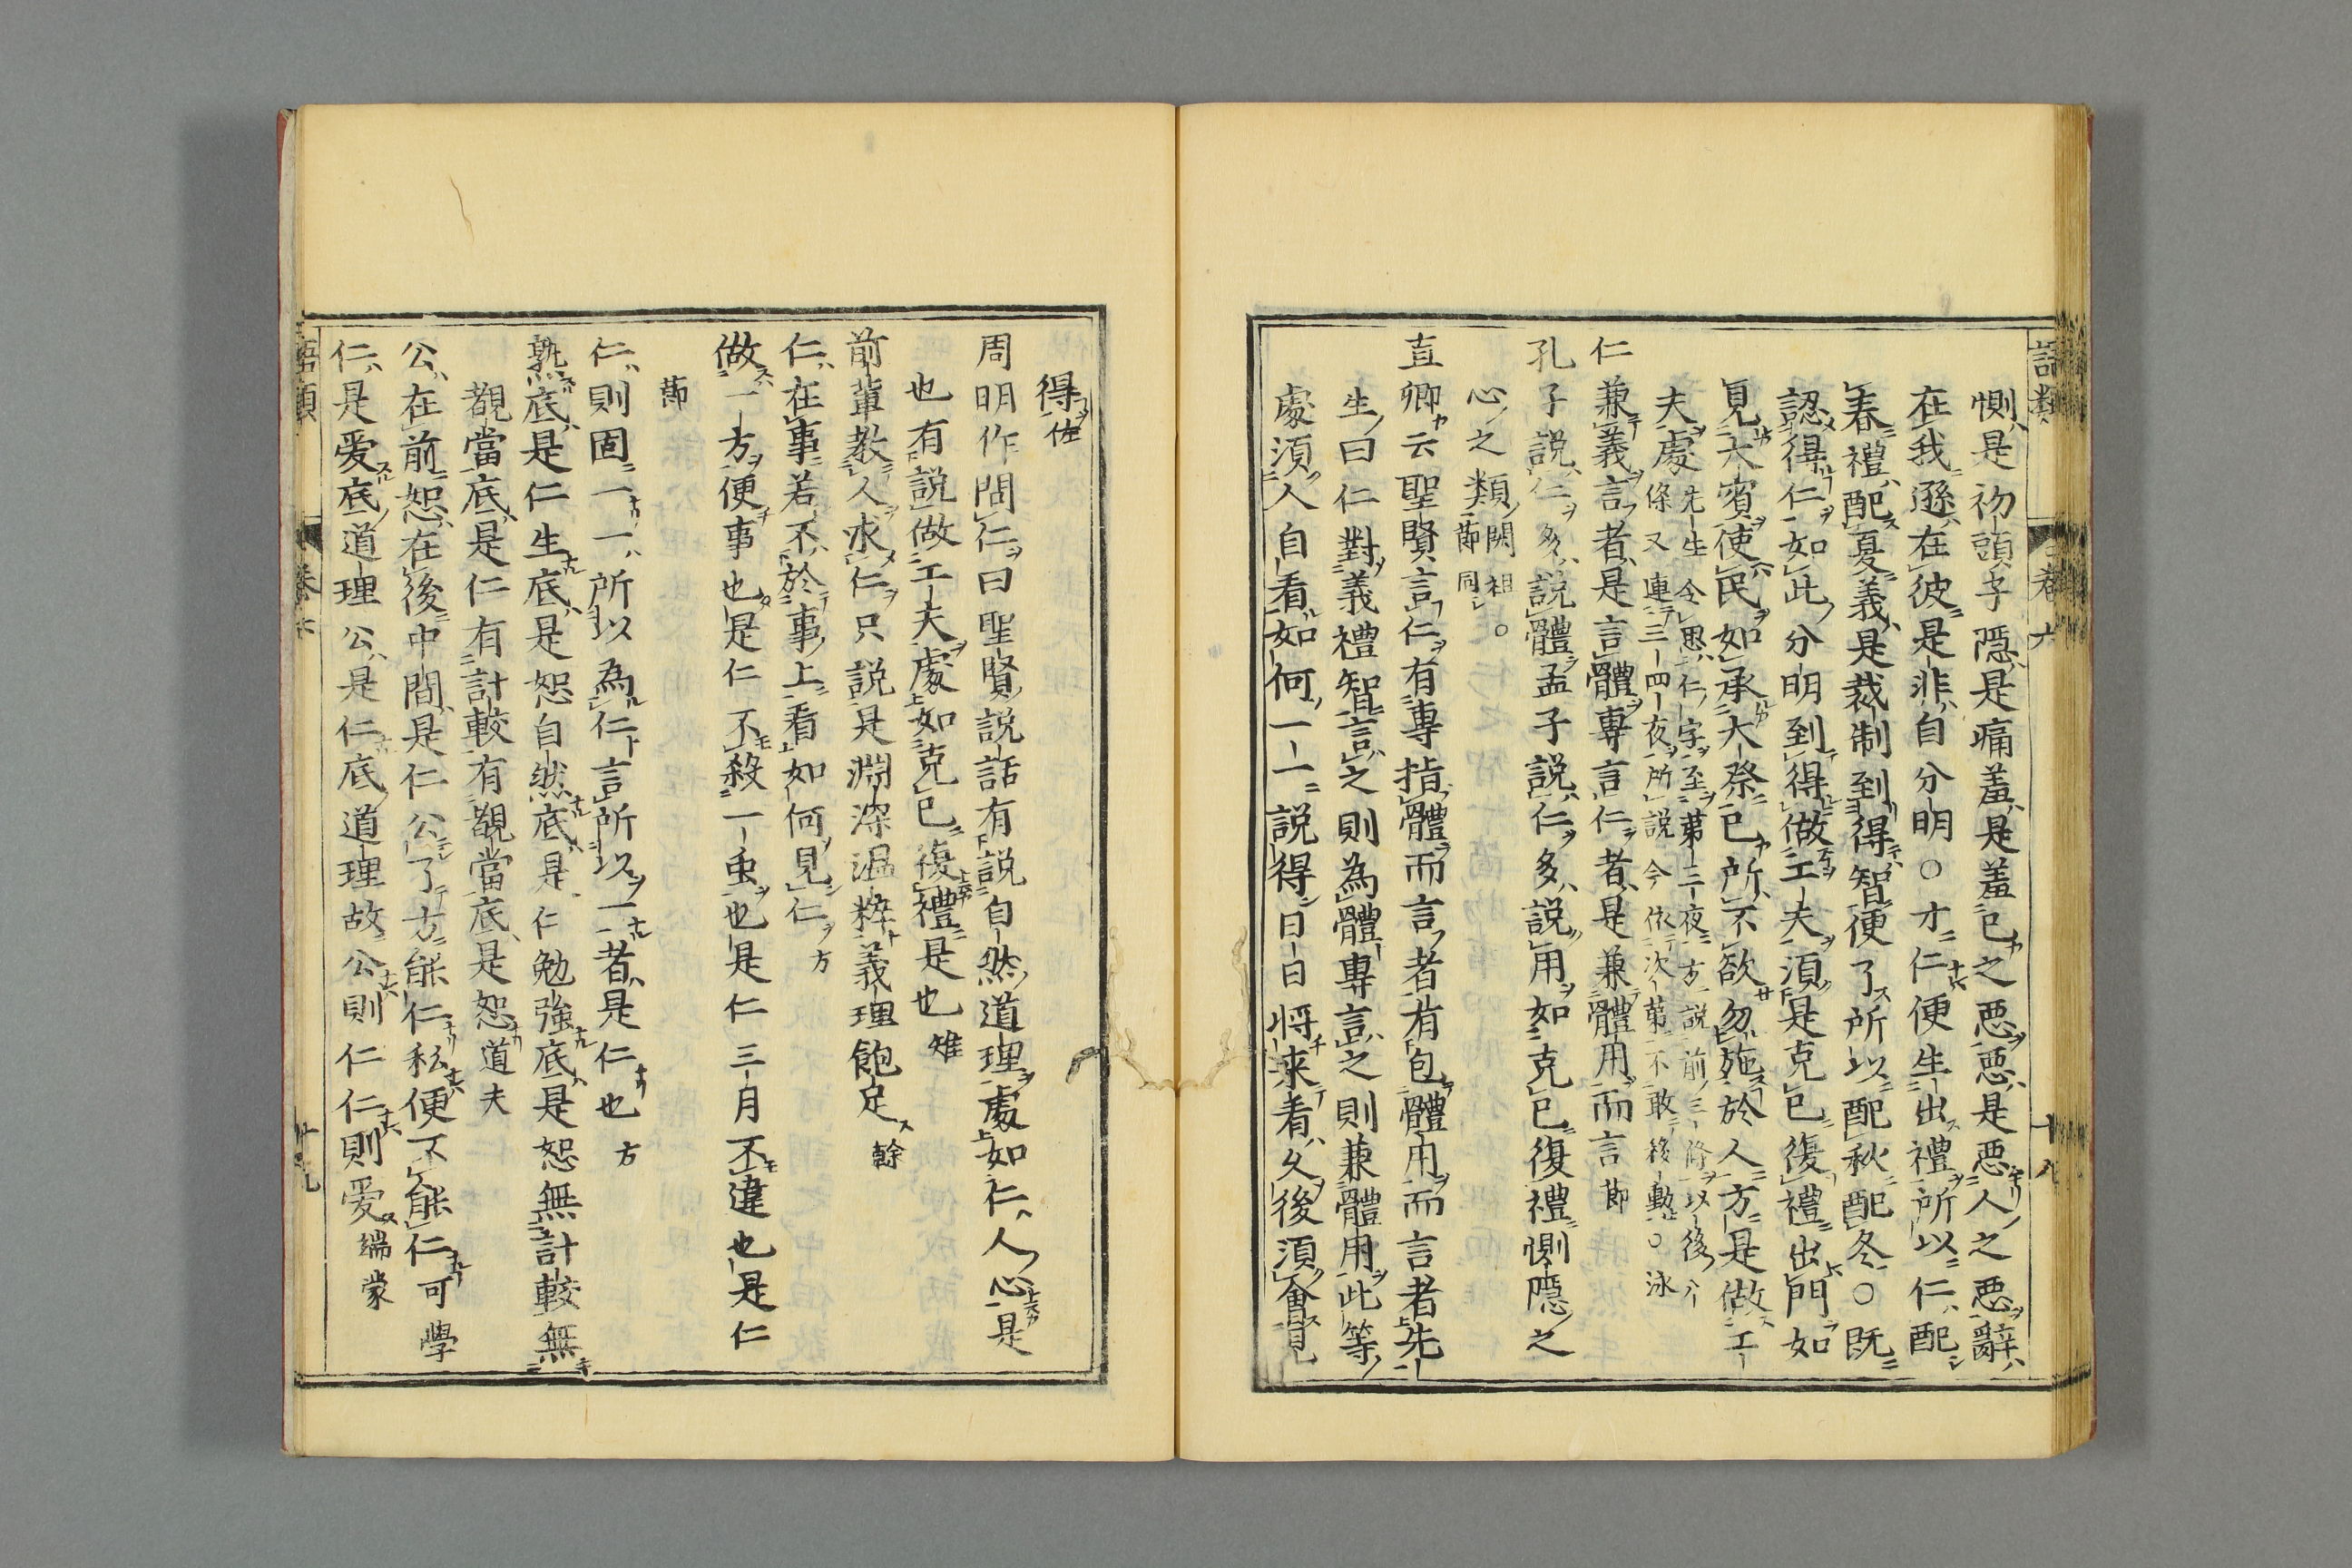 語類 卷六 十八
惻是初頭子隱是痛羞是羞己之惡惡是惡人之惡辭
在我遜在彼是非自分明○才仁便生出禮所以仁配
春禮配夏義是裁制到得智便了所以配秋配冬○既
認得仁如此分明到得做工夫須是克己復禮出門如
見大賓使民如承大祭己所不欲勿施於人方是做工
夫處
先生令思仁字至第三夜方說前三條以後八
條又連三四夜所說今依次第不敢移動○泳
仁兼義言者是言體專言仁者是兼體用而言節
孔子說仁多說體孟子說仁多說用如克己復禮惻隱之
心之類
閎祖
節同○
直卿云聖賢言仁有專指體而言者有包體用而言者先
生曰仁對義禮智言之則為體專言之則兼體用此等
處須人自看如何一一說得日日將來看久後須會見
得佐
周明作問仁曰聖賢說話有說自然道理處如仁人心是
也有說做工夫處如克己復禮是也雉
前輩教人求仁只說是淵深溫粹義理飽足榦
仁在事若不於事上看如何見仁方
做一方便事也是仁不殺一虫也是仁三月不違也是仁
節
仁則固一一所以為仁言所以一者是仁也方
熟底是仁生底是恕自然底是仁勉強底是恕無計較無
覩當底是仁有計較有覩當底是恕道夫
公在前恕在後中間是仁公了方能仁私便不能仁可學
仁是愛底道理公是仁底道理故公則仁仁則愛端蒙
語類 卷六 十九